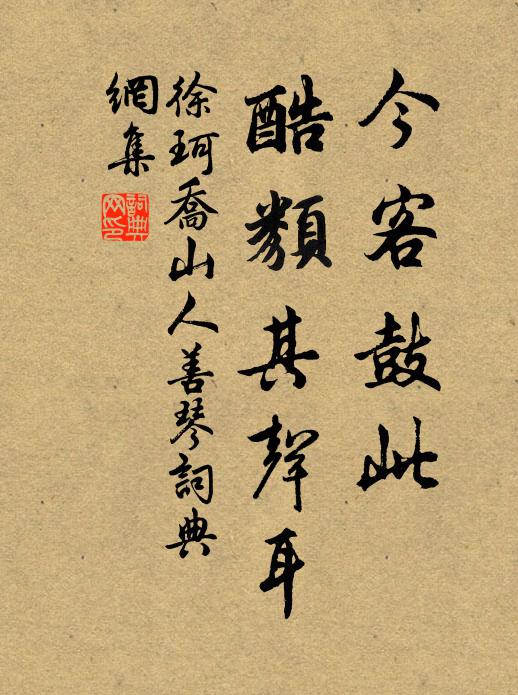 今客鼓此
酷類其聲耳
徐珂喬山人善琴詞典
網集
詞典
网印